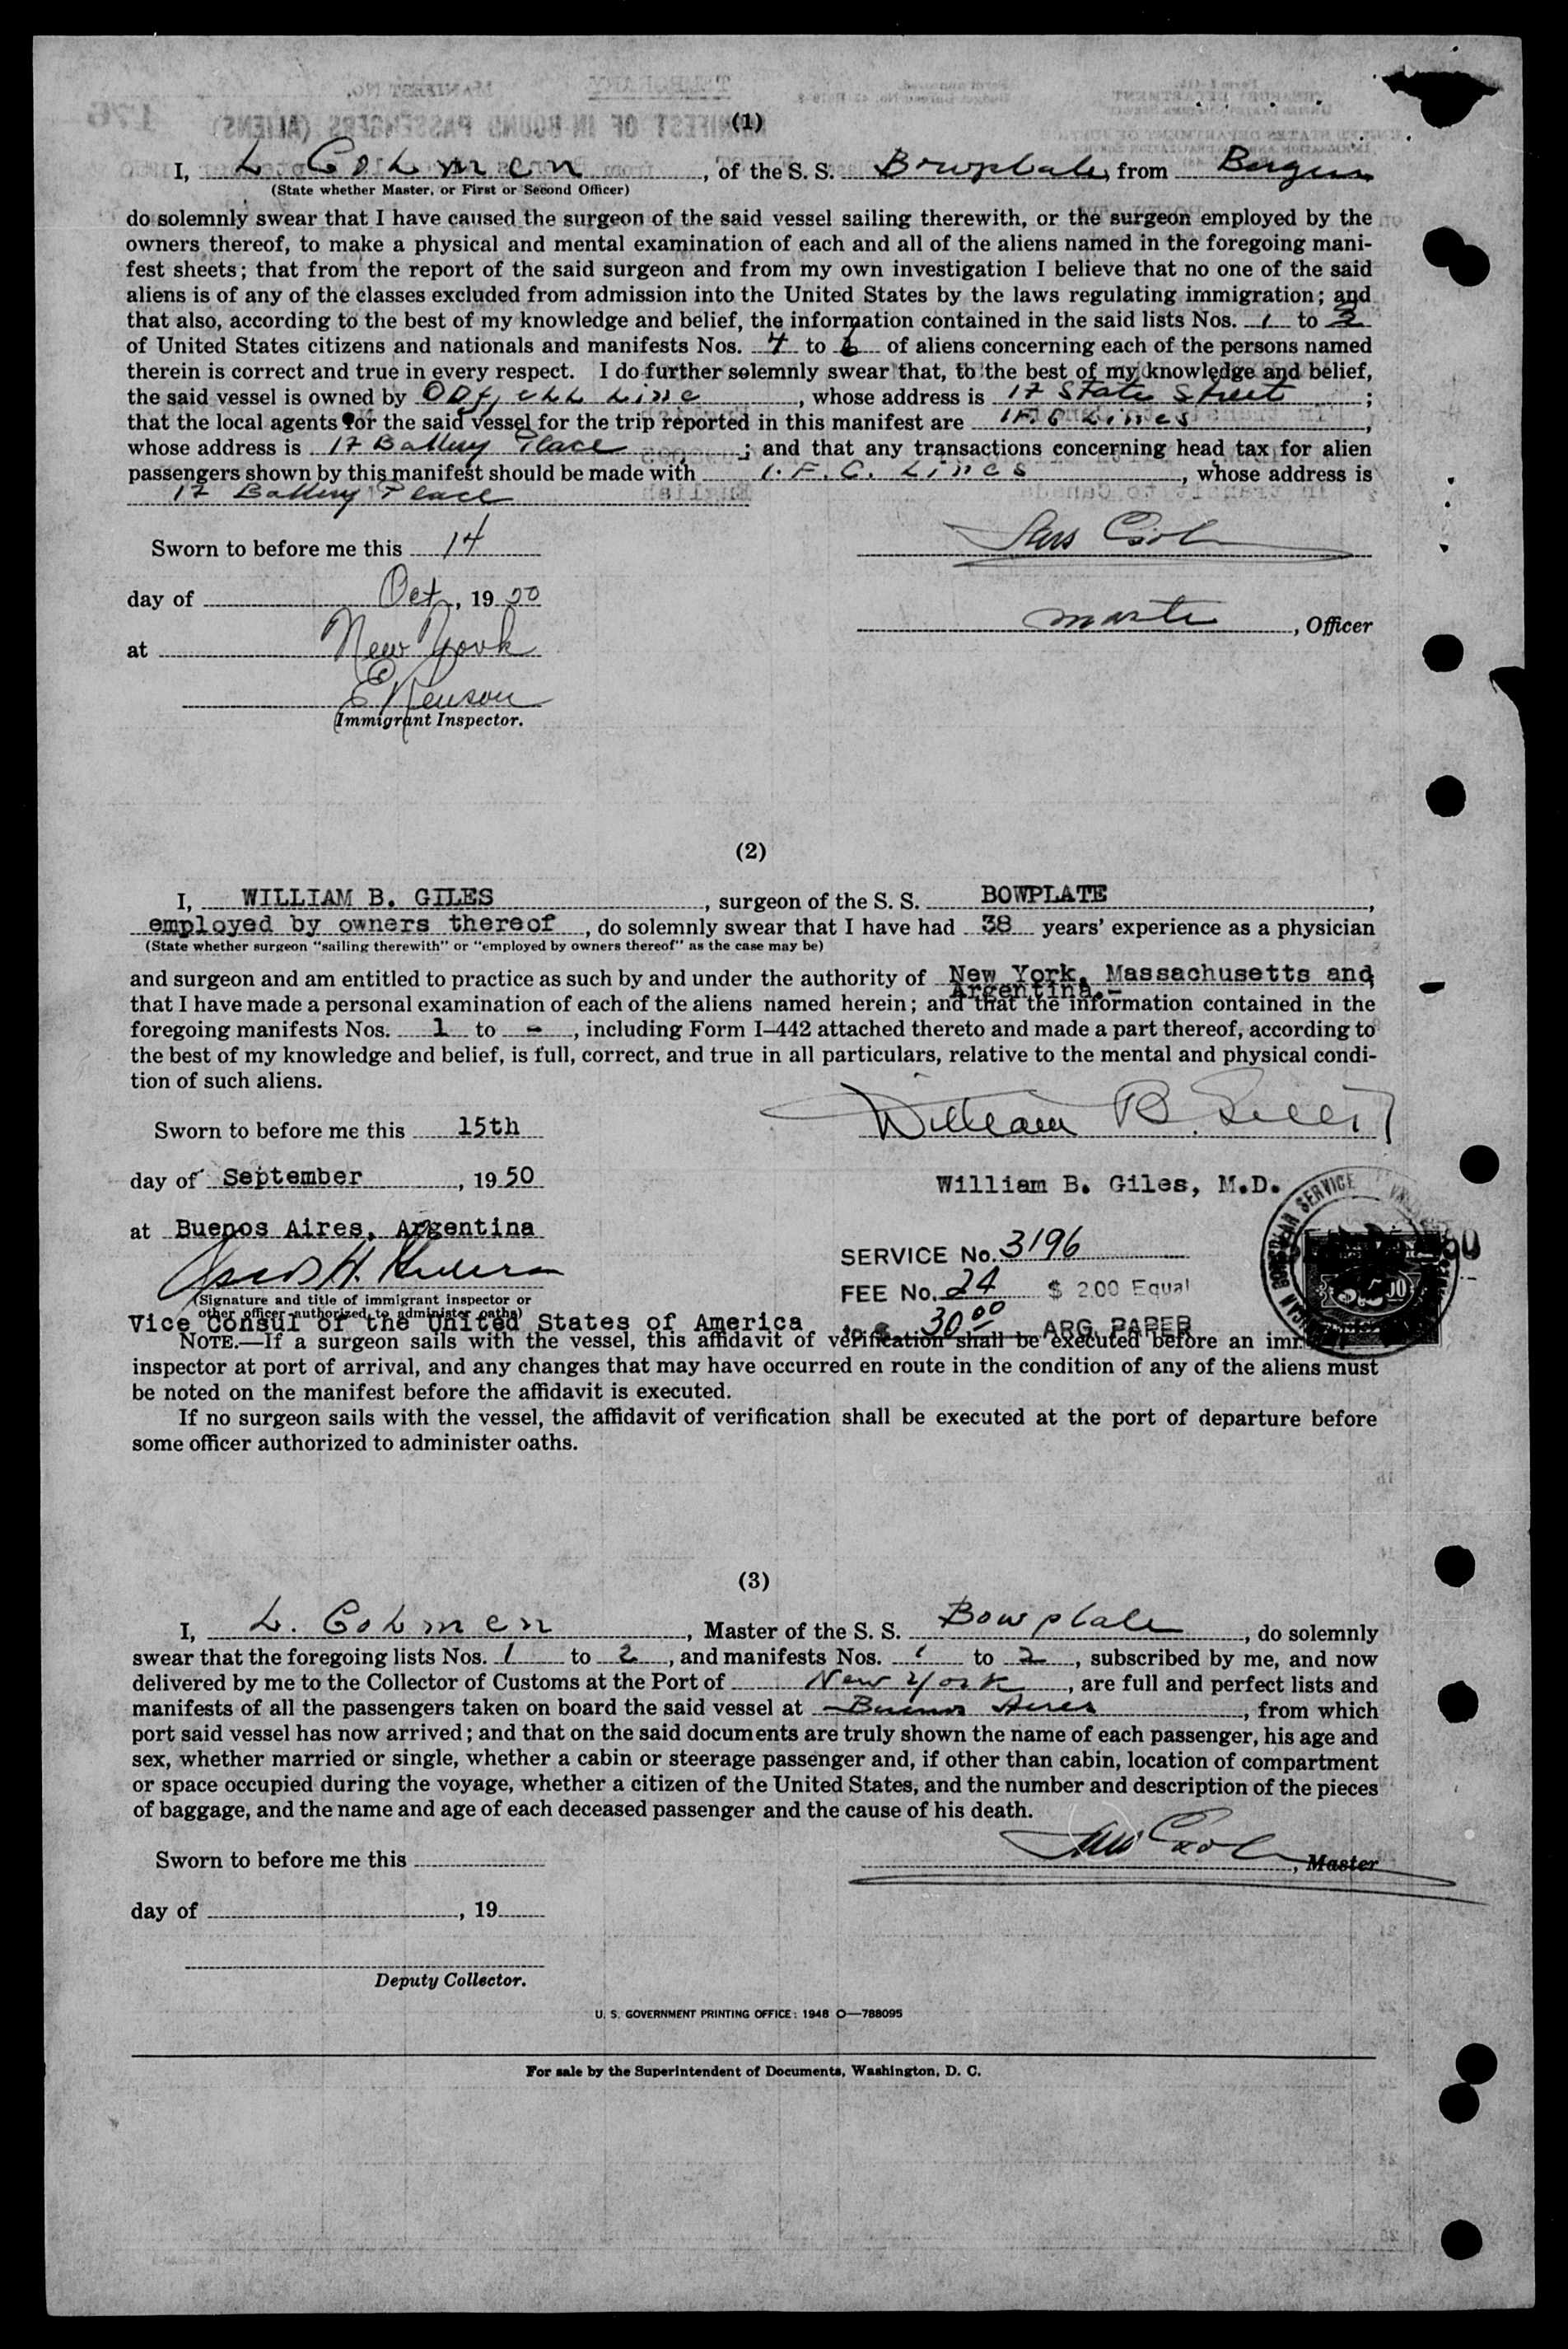 (1)
I, L Golmen, of the S. S. Bowplate, from Bergen
(State whether Master, or First or Second Officer)
do solemnly swear that I have caused the surgeon of the said vessel sailing therewith, or the surgeon employed by the
owners thereof, to make a physical and mental examination of each and all of the aliens named in the foregoing mani-
fest sheets; that from the report of the said surgeon and from my own investigation I believe that no one of the said
aliens is of any of the classes excluded from admission into the United States by the laws regulating immigration; and
that also, according to the best of my knowledge and belief, the information contained in the said lists Nos. 1 to
of United States citizens and nationals and manifests Nos. 4 to 6 of aliens concerning each of the persons named
therein is correct and true in every respect. I do further solemnly swear that, to the best of my knowledge and belief,
the said vessel is owned by Odfjell Line, whose address is 17 State Street;
that the local agents for the said vessel for the trip reported in this manifest are I.F.C Lines,
whose address is 17 Battery Place; and that any transactions concerning head tax for alien
passengers shown by this manifest should be made with I.F.C. Lines, whose address is
17 Battery Place
Sworn to before me this 14
day of Oct, 1950
Master, Officer
at New York
Immigrant Inspector.
(2)
I, WILLIAM B. GILES, surgeon of the S. S. BOWPLATE,
employed by owners thereof, do solemnly swear that I have had 38 years' experience as a physician
(State whether surgeon "sailing therewith" or "employed by owners thereof" as the case may be)
and surgeon and am entitled to practice as such by and under the authority of New York, Massachusetts and
Argentina.-
that I have made a personal examination of each of the aliens named herein; and that the information contained in the
foregoing manifests Nos. 1 to -, including Form I-442 attached thereto and made a part thereof, according to
the best of my knowledge and belief, is full, correct, and true in all particulars, relative to the mental and physical condi-
tion of such aliens.
William B. Giles
Sworn to before me this 15th
day of September, 1950
William B. Giles, M.D.
at Buenos Aires, Argentina
SERVICE No. 3196
FEE No. 24 $ 2.00 Equal
(Signature and title of immigrant inspector or
other officer authorized to administer oaths)
Vice Consul of the United States of America
to $ 30.00 ARG. PAPER
NOTE.—If a surgeon sails with the vessel, this affidavit of verification shall be executed before an
inspector at port of arrival, and any changes that may have occurred en route in the condition of any of the aliens must
be noted on the manifest before the affidavit is executed.
If no surgeon sails with the vessel, the affidavit of verification shall be executed at the port of departure before
some officer authorized to administer oaths.
(3)
I, L. Golmen, Master of the S. S. Bowplate, do solemnly
swear that the foregoing lists Nos. 1 to 2, and manifests Nos. 1 to 2, subscribed by me, and now
delivered by me to the Collector of Customs at the Port of New York, are full and perfect lists and
manifests of all the passengers taken on board the said vessel at Buenos Aires, from which
port said vessel has now arrived; and that on the said documents are truly shown the name of each passenger, his age and
sex, whether married or single, whether a cabin or steerage passenger and, if other than cabin, location of compartment
or space occupied during the voyage, whether a citizen of the United States, and the number and description of the pieces
of baggage, and the name and age of each deceased passenger and the cause of his death.
Sworn to before me this
, Master
day of , 19
Deputy Collector.
U. S. GOVERNMENT PRINTING OFFICE: 1948 O—788095
For sale by the Superintendent of Documents, Washington, D. C.